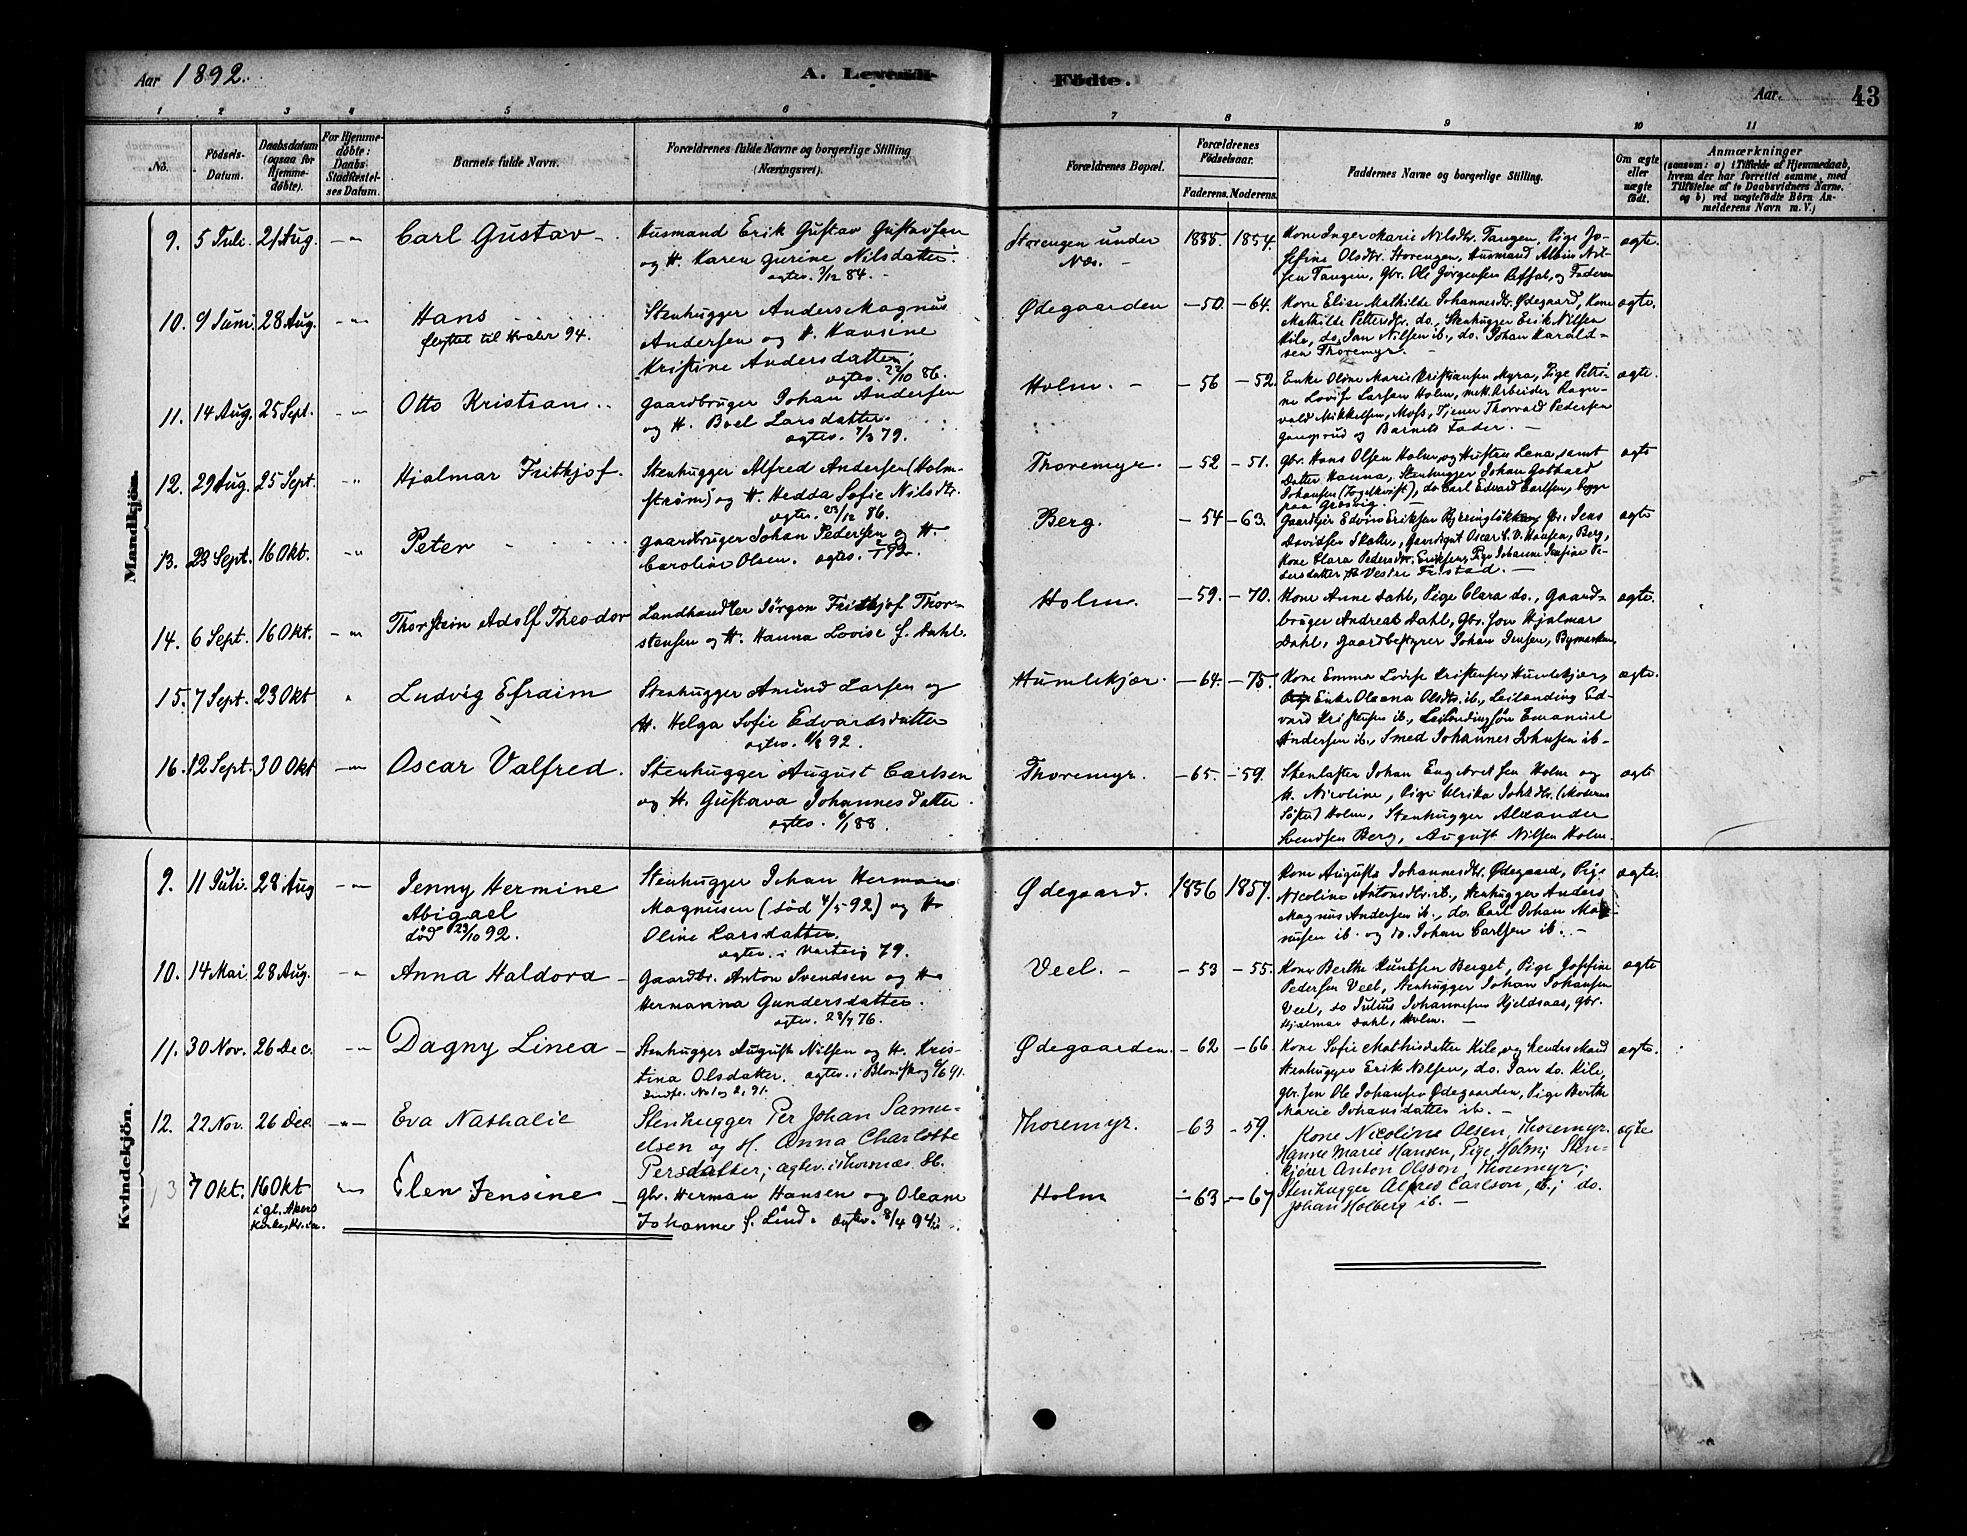 Aar 1892.
A. Levende Fødte.
Aar. 43
1 2 3 4 5 6 7 8 9 10 11
No.
Födsels-Datum.
Daabsdatum (ogsaa for Hjemmedøbte).
For Hjemmedøbte: Daabs Stadfæstelses Datum.
Barnets fulde Navn.
Forældrenes fulde Navne og borgerlige Stilling (Næringsvei).
Forældrenes Bopæl.
Forældrenes Födselsaar.
Faderens. Moderens.
Faddernes Navne og borgerlige Stilling.
Om ægte eller uægte født.
Anmærkninger
(saasom: a) i Tilfælde af Hjemmedaab,
hvem der har forrettet samme, med
Tilføielse af to Daabsvidners Navne.
og b) ved uægtefödte Börn An-
melderens Navn m. V.)
Mandkjön.
9. 5 Juli. 21 Aug. Carl Gustav
Husmand Erik Gustav Gustavsen
og H. Karen Gurine Nilsdatter.
ægtev. 7/12 84.
Storengen under
Næs.
1855. 1854.
Kone Inger Marie Nilsdtr. Tangen, Pige Jo-
sefine Olsdtr. Storengen, Husmand Albin Nil-
sen Tangen, Gbr. Ole Jørgensen, og Faderen
ægte.
10. 9 Juni. 28 Aug. Hans
flyttet til Hvaler 94.
Stenhugger Anders Magnus
Andersen og H. Hansine
Kristine Andersdatter.
ægtev. 22/10 86.
Ødegaarden
-50. -64.
Kone Elise Mathilde Johannesdtr. Ødegaard, Kone
Mathilde Pettersdtr. do., Stenhugger Erik Nilsen
Kile, do. Jan Nilsen ib., do. Johan Harald-
sen Thoremyr.
ægte.
11. 14 Aug. 25 Sept. Otto Kristian
Gaardbruger Johan Andersen
og H. Boel Larsdatter.
ægtev. 7/3 79.
Holm.
-56 -52.
Enke Oline Marie Kristiansen Myra, Pige Petri-
ne Lovise Larsen Holm, Arbeider Ragn-
vald Mikkelsen, Moss, Tjener Thorvald Pedersen
og Barnets Fader.
ægte.
12. 29 Aug. 25 Sept. Hjalmar Frithjof.
Stenhugger Alfred Andersen (Holm-
strøm) og H. Hedda Sofie Nilsdtr.
ægtev. 23/12 86.
Thoremyr.
-52 -51.
Gbr. Hans Olsen Holm, og Hustru Lena, samt
Datter Hanna, Stenhugger Johan Gotthard
Johansen (Fogelkvist), do. Carl Edvard Carlsen, begge
paa Græsvig.
ægte
13. 23 Sept. 16 Okt. Peter
Gaardbruger Johan Pedersen og H.
Caroline Olsen. ægtev. 92.
Berg.
-54 -63.
Gaardeier Edvin Eriksen, Gbr. Jens
Davidsen, Oscar E. V. Hansen, Berg,
Kone Clara Pedersdtr. Eriksen, Pige Johanne Josefine Pe-
dersdatter Vestre Fristad.
ægte
14. 6 Sept. 16 Okt. Thorstein Adolf Theodor
Landhandler Jörgen Frithjof Thor-
stensen og H. Hanna Lovise f. Dahl.
Holm.
-59. -70.
Kone Anne Dahl, Pige Clara do., Gaard-
bruger Andreas Dahl, Gbr. Søn Hjalmar
Dahl, Gaardbestyrer Johan Jensen, Bymarken
ægte.
15. 7 Sept. 23 Okt Ludvig Efraim
Stenhugger Amund Larsen og
H. Helga Sofie Edvardsdatter
ægtev. 6/8 92.
Humlekjær.
-64. -75.
Kone Emma Lovise Kristensen Humlekjær,
Enke Oleana Olsdtr. ib., Leilending Ed-
vard Kristensen ib., Leilendingsøn Emanuel
Andersen ib., Smed Johannes Johnsen ib-
ægte.
16. 12 Sept. 30 Okt Oscar Valfred.
Stenhugger August Carlsen
og H. Gustava Johannesdatter.
ægtev. 6/1 88.
Thoremyr.
-65. -59.
Johan Engebretsen Holm og
H. Nicoline, Pige Ulrika Johsdtr. (Moderens
Söster) Holm, Stenhugger Alexander
Svendsen Berg, August Nilsen Holm.
ægte
Kvindekjön.
9. 11 Juli. 28 Aug Jenny Hermine
Abigael
död 23/10 92.
Stenhugger Johan Herman
Magnusen (död 4/5 92) og H.
Oline Larsdatter.
ægtev. i Varteig 79.
Ødegaard.
1856 1857.
Kone Augusta Johannesdtr. Ødegaard, Pige
Nicoline Antonsdtr. ib., Stenhugger Anders
Magnus Andersen ib., do. Carl Johan Mag-
nusen ib. og do. Johan Carlsen ib.
ægte.
10. 14 Mai. 28 Aug. Anna Haldora
Gaardbr. Anton Svendsen og H.
Hermanna Gundersdatter.
ægtev. 28/7 76.
Veel.
-53 -55.
Kone Berthe Knutsen Berget, Pige Josefine
Pedersen Veel, Stenhugger Johan Johansen
Veel, do Julius Johannesen Kjeldsaas, gbr.
Hjalmar Dahl, Holm.
ægte
11. 30 Nov. 26 Dec. Dagny Linea
Stenhugger August Nilsen og H. Kris-
tina Olsdatter. ægtev. i Blomskog 6/6 91.
Indfl. No 1 og 2, 91.
Ødegaarden.
-62 -66.
Kone Sofie Mathisdatter Kile, og hendes Mand
Stenhugger Erik Nilsen, do. Jan do. Kile,
gbr. søn Ole Johansen Ødegaarden, Pige Berthe
Marie Johansdatter ib.
ægte.
12. 22 Nov. 26 Dec. Eva Nathalie
Stenhugger Per Johan Samu-
elsen og H. Anna Charlotte
Persdatter; ægtev. i Thornæs 86.
Thoremyr.
-63 -59.
Kone Nicoline Olsen, Thoremyr.
Hanne Marie Hansen, Pige, Holm; Sten-
kjører Anton Olsson, Thoremyr;
Stenhugger Alfred Carlson, ib.; do.
Johan Holberg ib.
ægte
13 7 Okt. 16 Okt
i gl. Akers
Kirke, Kr.ia.
Elen Jensine
gbr. Herman Hansen og Oleane
Johanne f. Lind. ægtev. 8/4 94
Holm
-63 -67